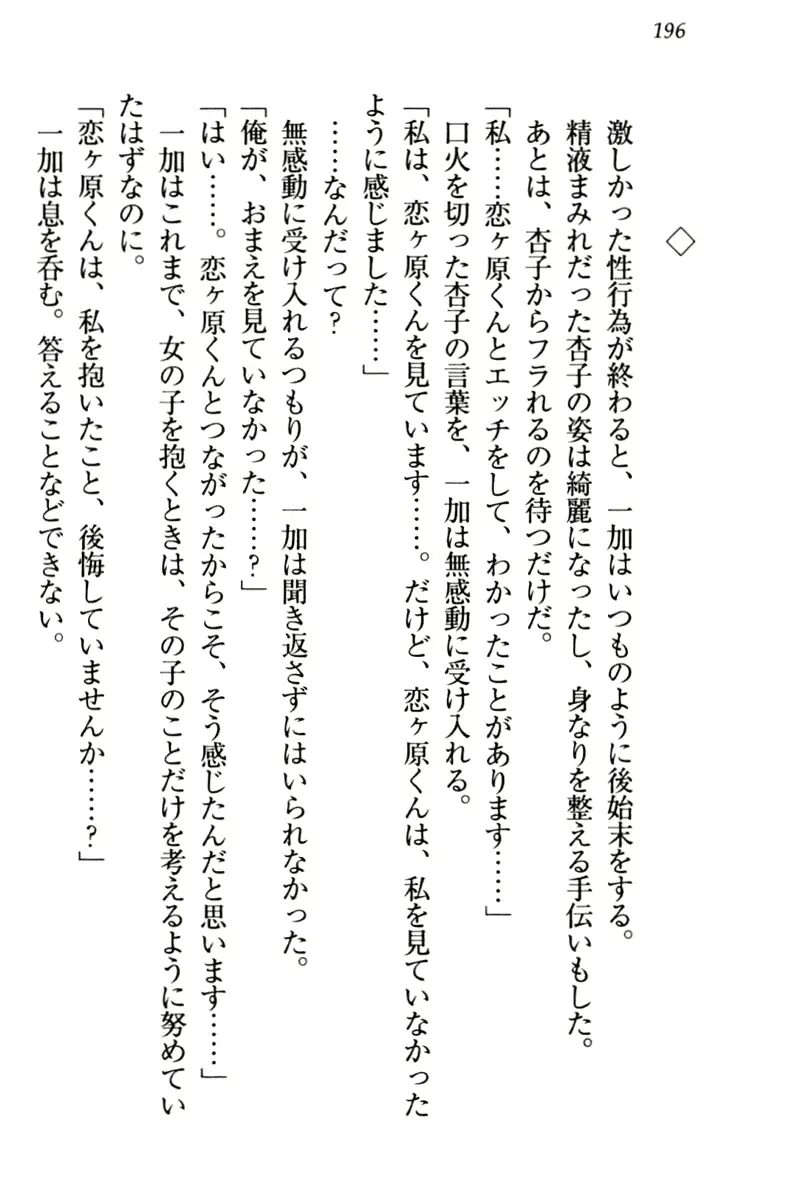 196
◇
激しかった性行為が終わると、一加はいつものように後始末をする。
精液まみれだった杏子の姿は綺麗になったし、身なりを整える手伝いもした。
あとは、杏子からフラれるのを待つだけだ。
「私……恋ヶ原くんとエッチをして、わかったことがあります……」
口火を切った杏子の言葉を、一加は無感動に受け入れる。
「私は、恋ヶ原くんを見ています……。だけど、恋ヶ原くんは、私を見ていなかった
ように感じました……」
……なんだって？
無感動に受け入れるつもりが、一加は聞き返さずにはいられなかった。
「俺が、おまえを見ていなかった……？」
「はい……。恋ヶ原くんとつながったからこそ、そう感じたんだと思います……」
一加はこれまで、女の子を抱くときは、その子のことだけを考えるように努めてい
たはずなのに。
「恋ヶ原くんは、私を抱いたこと、後悔していませんか……？」
一加は息を呑む。答えることなどできない。